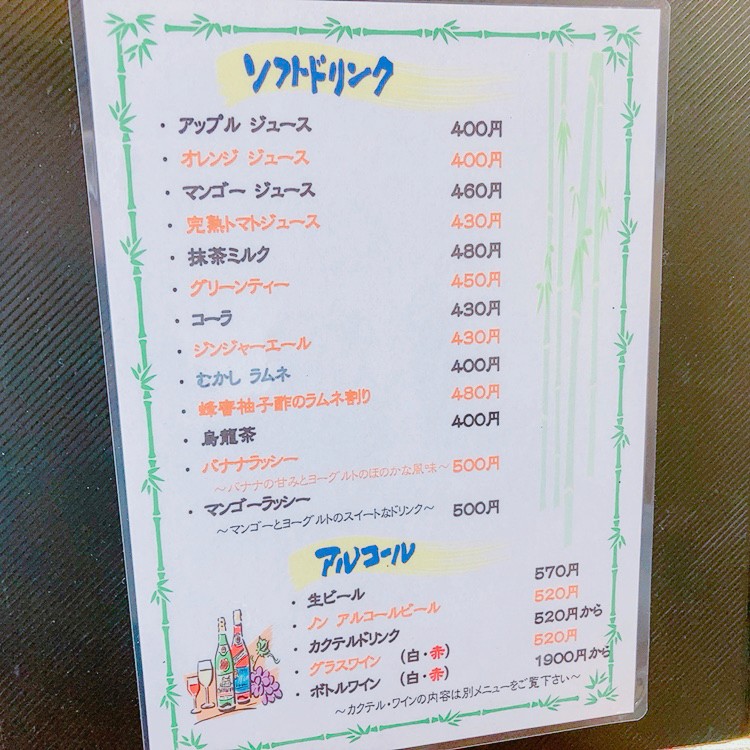 ソフトドリンク
・アップル ジュース 400円
・オレンジ ジュース 400円
・マンゴー ジュース 460円
・完熟トマトジュース 430円
・抹茶ミルク 480円
・グリーンティー 450円
・コーラ 430円
・ジンジャーエール 430円
・むかし ラムネ 400円
・蜂蜜柚子酢のラムネ割り 480円
・烏龍茶 400円
・バナナラッシー
～バナナの甘みとヨーグルトのほのかな風味～ 500円
・マンゴーラッシー
～マンゴーとヨーグルトのスイートなドリンク～ 500円
アルコール
・生ビール 570円
・ノン アルコールビール 520円
・カクテルドリンク 520円から
・グラスワイン (白・赤) 520円
・ボトルワイン (白・赤) 1900円から
～カクテル・ワインの内容は別メニューをご覧下さい～